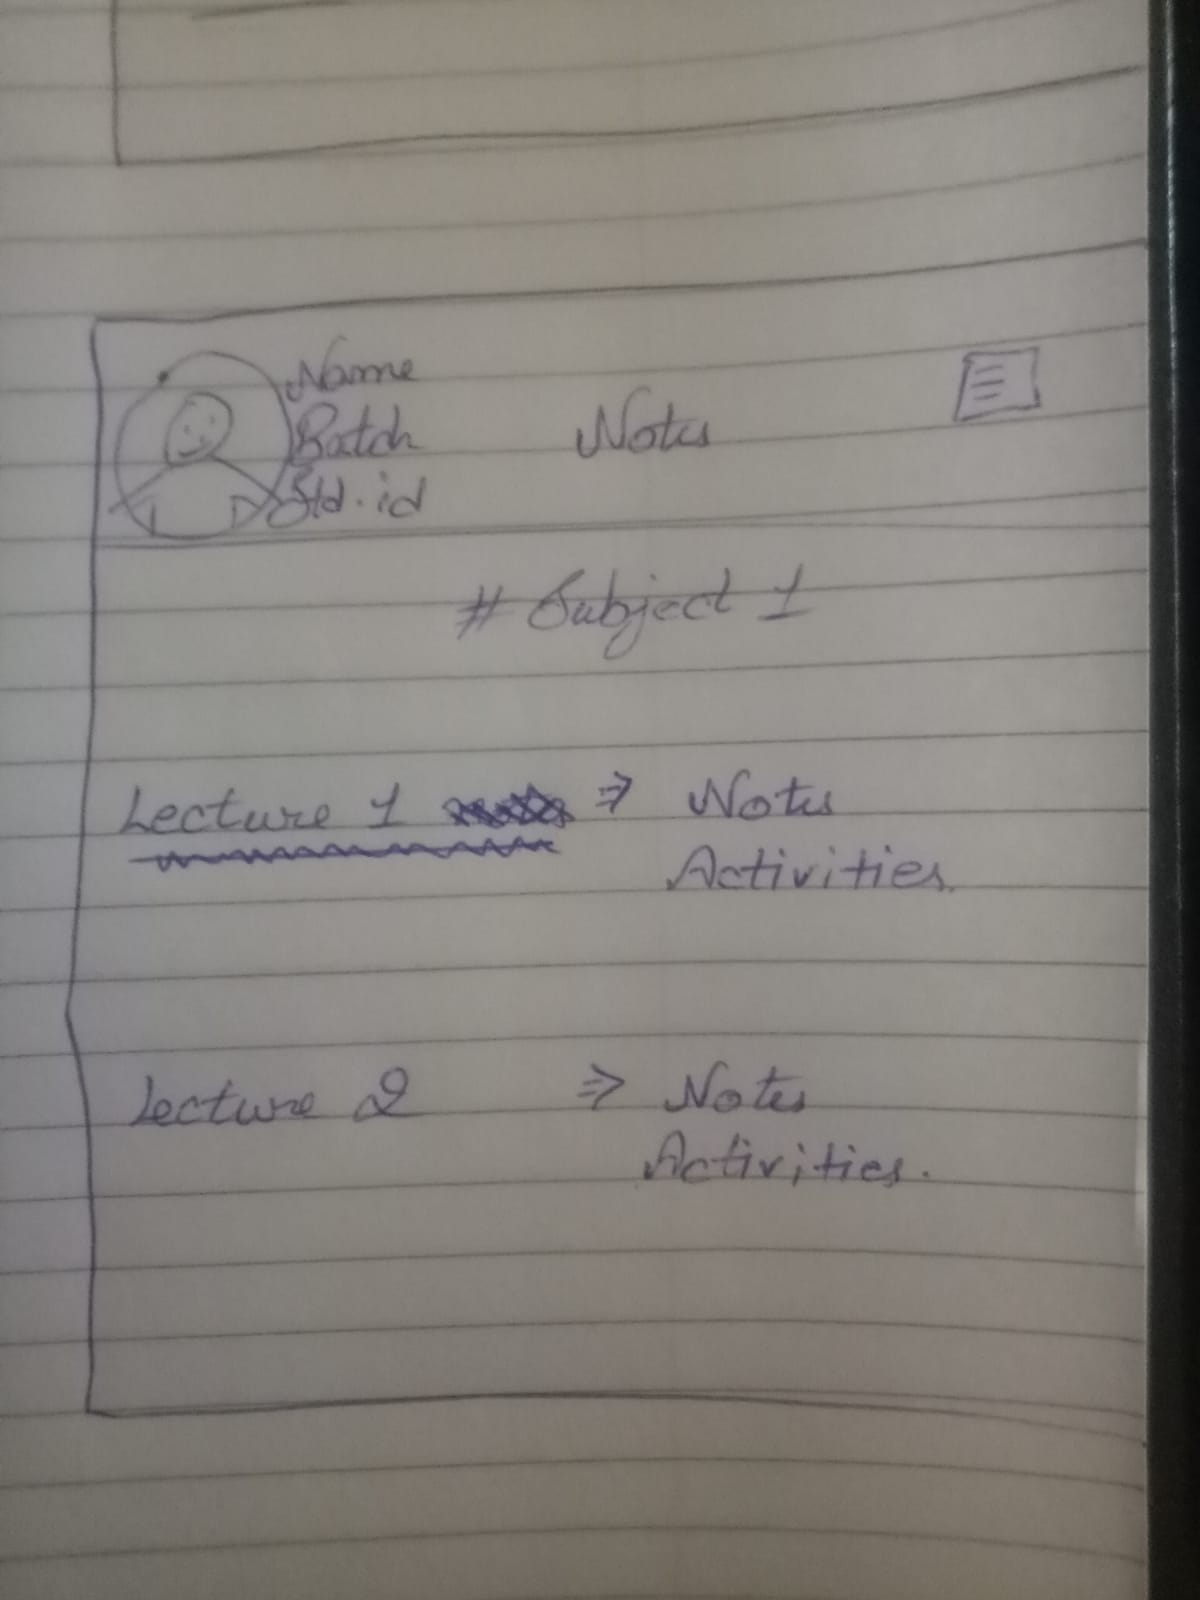 Name
Batch
Std.id
Notes
# Subject 1
Lecture 1 => Notes
Activities.
Lecture 2 => Notes
Activities.